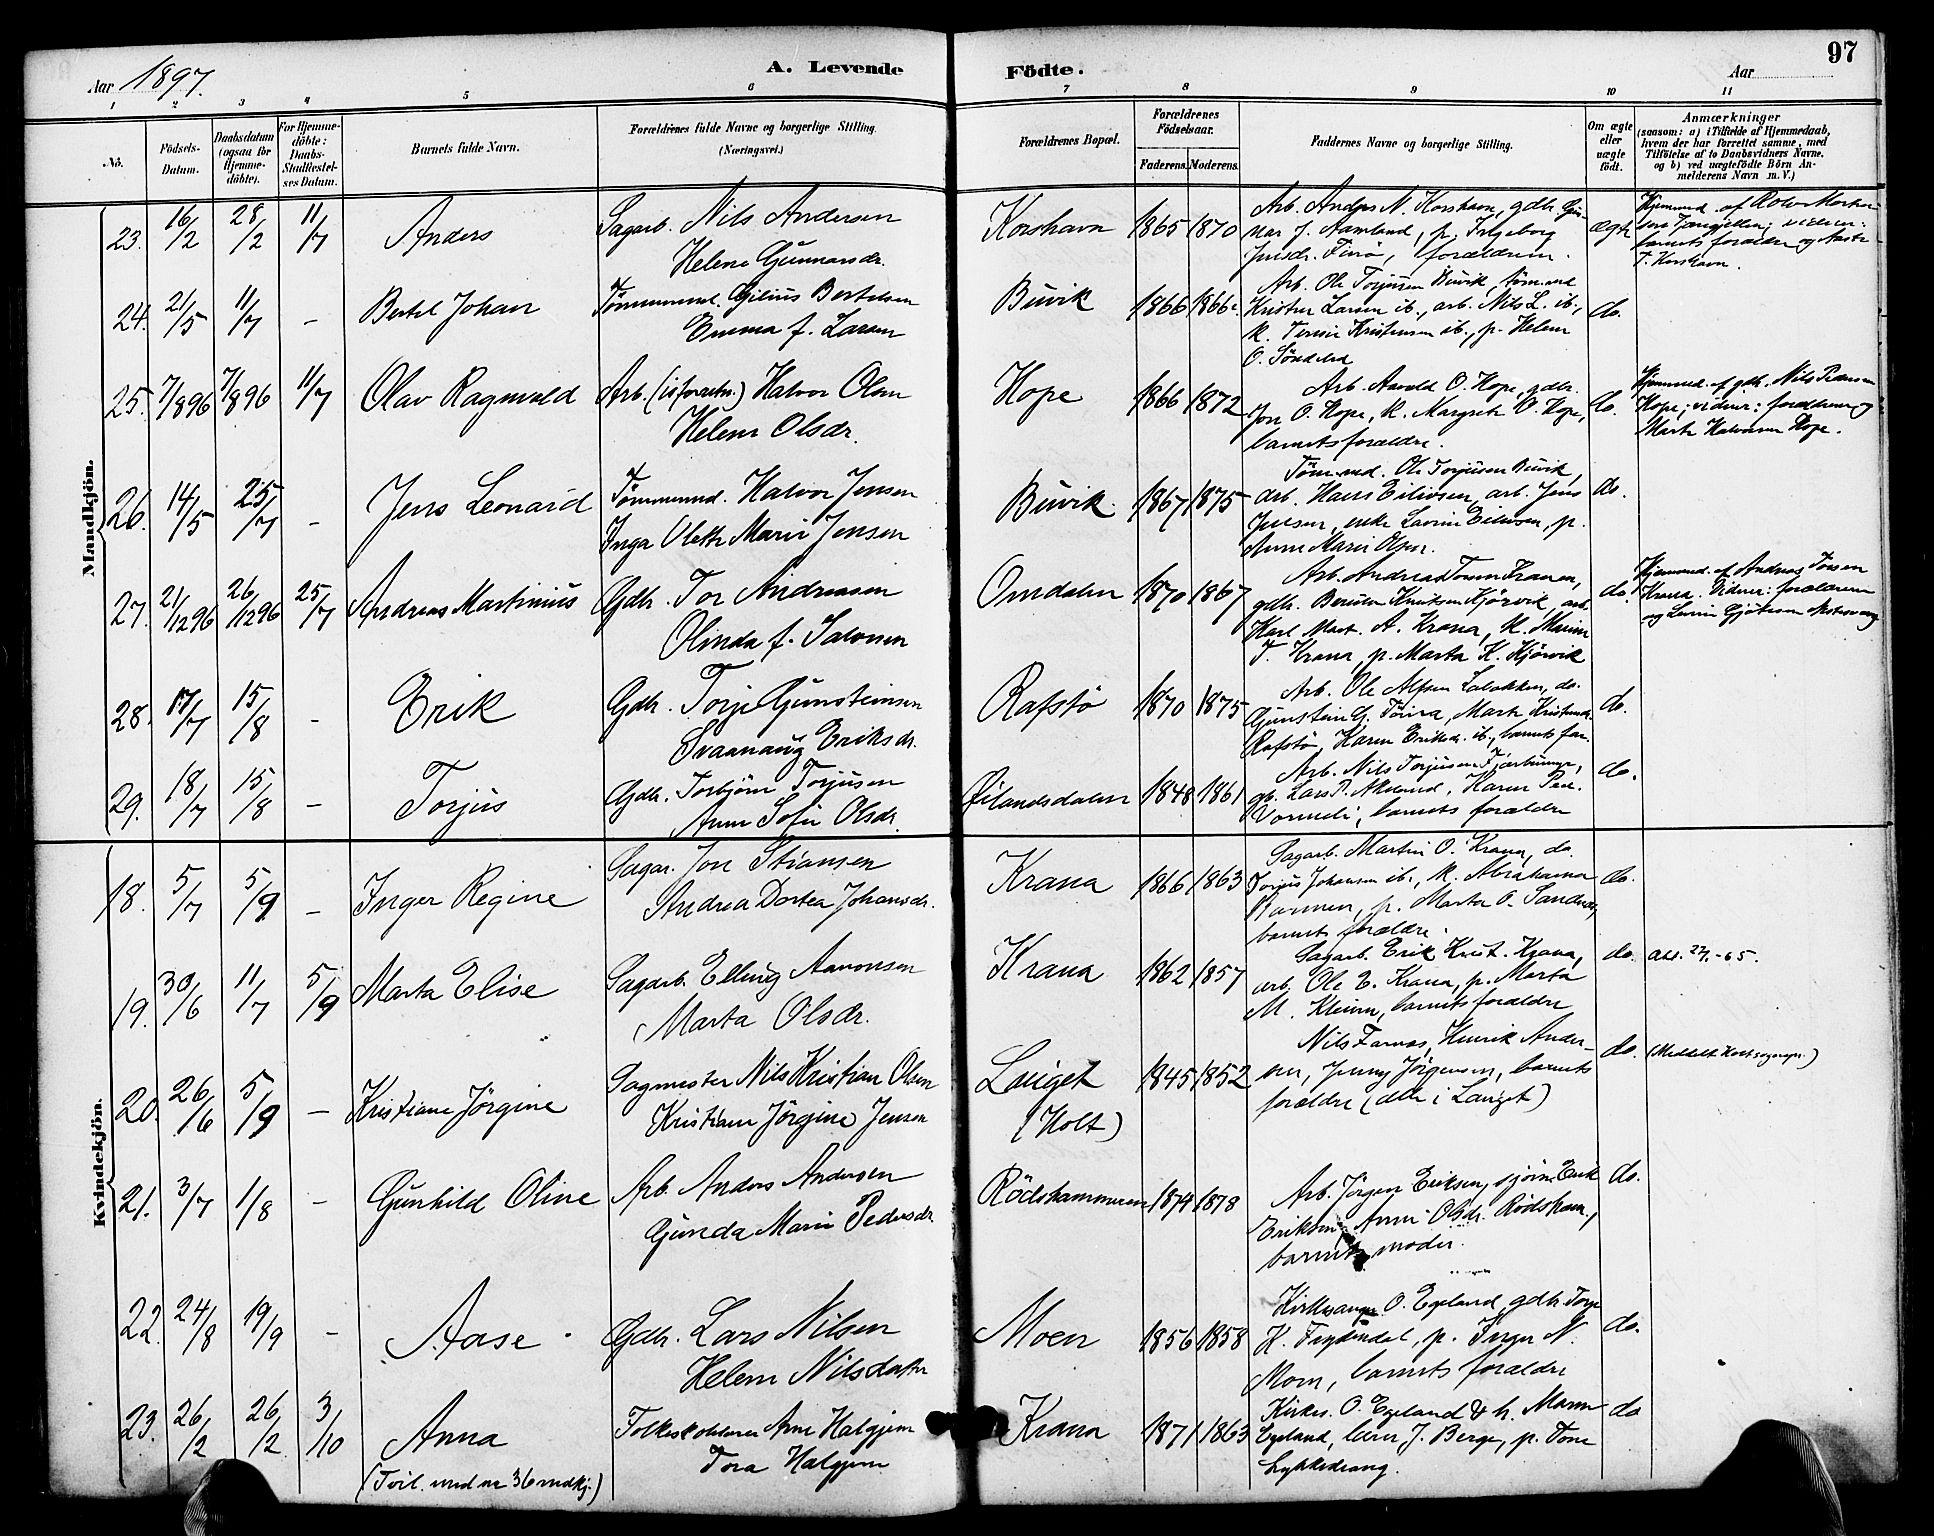 Aar 1897.
A. Levende Födte.
Aar
97
1 2 3 4 5 6 7 8 9 10 11
No.
Födsels-Datum.
Daabsdatum (ogsaa for Hjemme-döbte).
For Hjemme-döbte: Daabs-Stadfæstel-ses Datum.
Barnets fulde Navn.
Forældrenes fulde Navne og borgerlige Stilling.
(Næringsvei.)
Forældrenes Bopæl.
Forældrenes Födselsaar.
Faderens. Moderens.
Faddernes Navne og borgerlige Stilling.
Om ægte eller uægte født.
Anmærkninger
(saasom: a) i Tilfælde af Hjemmedaab, hvem der har forrettet samme, med Tilföielse af to Daabsvidners Navne, og b) ved uægtefödte Börn An-melderens Navn m.V.)
Mandkjön.
23. 16/2 28/2 11/7 Anders
Sagarb. Nils Andersen
Helene Gunnarsdr.
Korshavn 1865 1870
Arb. Anders N. Korshavn, gdbr. Gun-
nar J. Aamland, p. Ingeborg
Jensdr. Finsö, forældrene.
ægte
24. 21/5 11/7 - Bertel Johan
Tømmermd. Gilius Bertelsen
Emma f. Larsen
Buvik 1866 1866
Arb. Ole Torjusen Buvik, tøm.md
Kristen Larsen ib., arb. Nils L. ib.,
k. Kristensen ib., p. Helene
O.
do.
25. 7/8 96 7/8 96 11/7 Olav Ragnvald
Arb. Halvor Olsen
Helene Olsdr.
Hope 1866 1872
Arb. Aavold O. Hope, gdbr.
Jon O. Hope, k. Margrete O. Hope,
barnets forældre.
do.
Hjemmed. af gdb. Nils Pedersen
Hope; vidner: forældrene og
Marte Halvorsen Hope.
26. 14/5 25/7 - Jens Leonard
Tømmermd. Halvor Jensen
Inga Olette Marie Jensen
Buvik. 1867 1875
Tøm.md. Ole Torjusen Buvik,
arb. Hans Eilivsen, arb. Jens
Jensen, enke Lavine Eilivsen, p.
Anne Marie Olsen.
do.
27. 21/12 96 26/12 96 25/7 Andreas Martinius
Gdbr. Tor Andreasen
Olinda f. Salvesen
Omdalen 1870 1867
Arb. Andreas Torsen Krana,
gdbr. Knutsen Kjörvik, arb.
Karl Mart. A. Krana, k.
T. Krana, p. Marta K. Kjörvik
do.
Hjemmed. af Andreas Torsen
Krana. Vidner: forældrene
28. 17/7 15/8 - Erik
Gdbr. Torje Gunsteinsen
Svaanaug Eriksdr.
Rafstö 1870 1875
Arb. Ole Alfsen, do.
Gunstein G., Marte Kristensd.
Rafstö, Karen Eriksdr. ib., barnets far.
do.
29. 18/7 15/8 - Torjus
Gdbr. Torbjörn Torjusen
Anne Sofie Olsdr.
Øilandsdalen 1848 1861
Arb. Nils Torjusen,
gb. Lars P., Karen
barnets forældre
do.
Kvindekjön.
18. 5/7 5/9 - Inger Regine
Sagar. Jon Stiansen
Andrea Dortea Johansdr.
Krana 1866 1863
Sagarb. Martin O. Krana, do.
Torjus Johansen ib., k. Abrahama
p. Marta O. Sandnes,
barnets forældre.
do.
19. 30/6 11/7 5/9 Marta Elise
Sagarb. Elling Aanonsen
Marta Olsdr.
Krana 1862 1857
Sagarb. Erik Krist. Krana,
arb. Ole E. Krana, p. Marta
M., barnets forældre
do.
20. 26/6 5/9 - Kristiane Jörgine
Sagmester Nils Kristian Olsen
Kristiane Jörgine Jensen
Langet (Holt) 1845 1852
Nils, Henrik Ander-
sen, Jenny Jörgensen, barnets
forældre (alle i Langet)
do.
21. 3/7 1/8 - Gunhild Oline
Arb. Anders Andersen
Gunda Marie Pedersdr.
Rödshammeren 1874 1878
Arb. Jörgen Eriksen, sjöm. Erik
Eriksen, Anne Olsdr. Rödsham.,
barnets moder.
do.
22. 24/8 19/9 - Aase
Gdbr. Lars Nilsen
Helene Nilsdatter
Moen 1856 1858
Kirkesanger O. Egeland, gdbr. Torje
H., p. Inger N.
Moen, barnets forældre
do.
23. 26/2 26/2 3/10 Anna
(Tvil. med nr 36 mdkj.)
Folkeskolelærer Arne Halgjem
Tora Halgjem
Krana 1871 1863
Kirkes. O. Egeland & h. Maren
Egeland, lærer J. Berge, p. Tone
Lykkedrang.
do